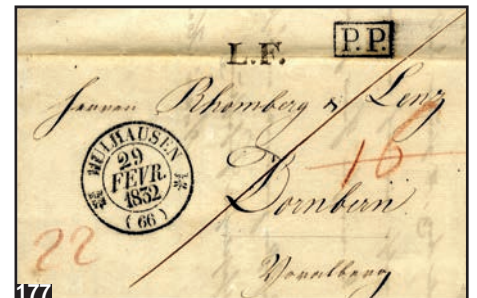 L.F. P.P.
Herren Rhomberg & Lenz
MULHAUSEN
29
FEVR.
1832
(66)
16
Dornbirn
22
Voralberg
177